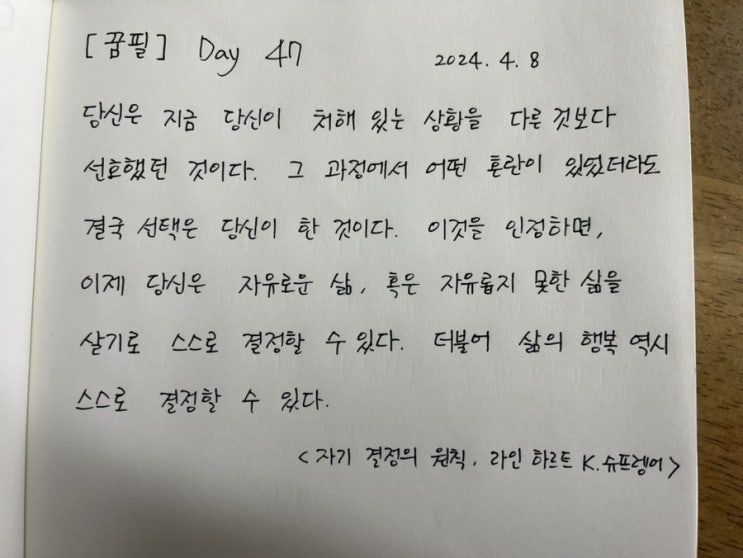 [꿈필] Day 47
2024. 4. 8
당신은 지금 당신이 처해 있는 상황을 다른 것보다
선호했던 것이다. 그 과정에서 어떤 혼란이 있었더라도
결국 선택은 당신이 한 것이다. 이것을 인정하면,
이제 당신은 자유로운 삶, 혹은 자유롭지 못한 삶을
살기로 스스로 결정할 수 있다. 더불어 삶의 행복 역시
스스로 결정할 수 있다.
<자기 결정의 원칙, 라인 하르트 K.슈프렝어>